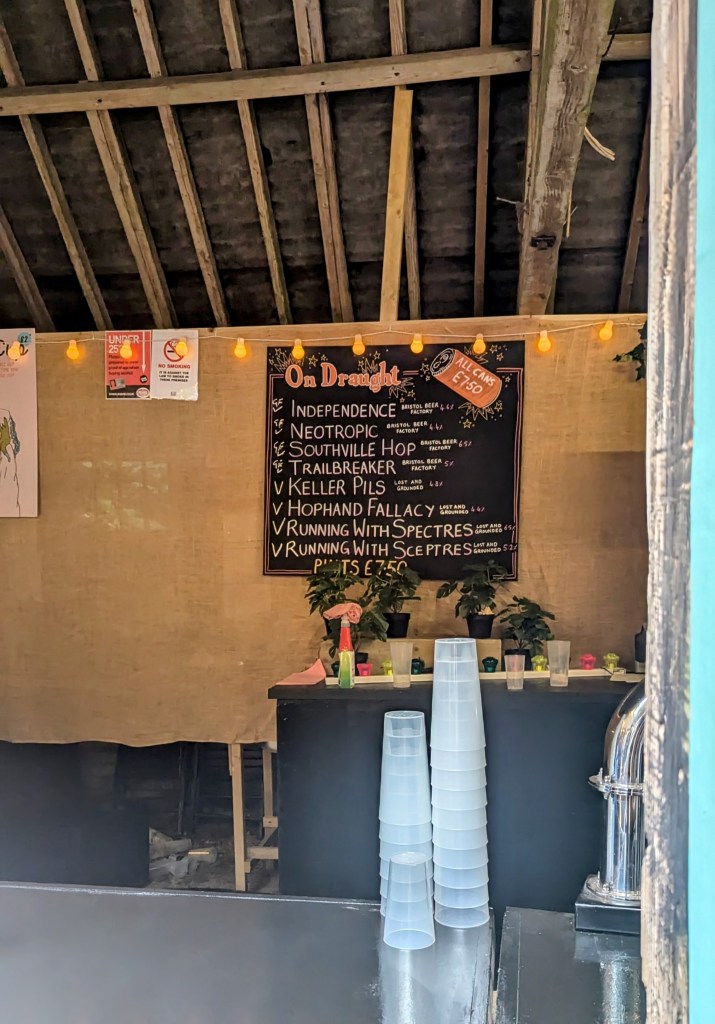 UNDER
25
NO SMOKING
IT IS AGAINST THE
LAW TO SMOKE IN
THESE PREMISES
On Draught
ALL CANS
£7.50
INDEPENDENCE BRISTOL BEER FACTORY 4.6%
NEOTROPIC BRISTOL BEER FACTORY 4.4%
SOUTHVILLE HOP BRISTOL BEER FACTORY 6.5%
TRAILBREAKER BRISTOL BEER FACTORY 5%
V KELLER PILS LOST AND GROUNDED 4.8%
V HOPHAND FALLACY LOST AND GROUNDED 4.4%
V RUNNING WITH SPECTRES LOST AND GROUNDED
V RUNNING WITH SCEPTRES LOST AND GROUNDED 5.2%
PINTS £7.50